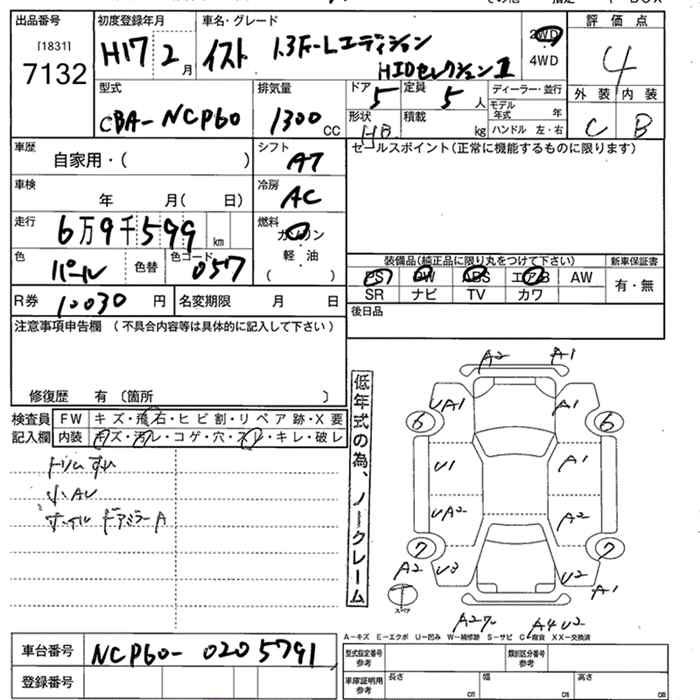 出品番号
[1831]
7132
初度登録年月
H17 2月
車名・グレード
イスト 1.3F-Lエディション
HIDセレクションII
2WD
4WD
評価点
4
外装 内装
C B
型式
CBA-NCP60
排気量
1300 CC
ドア
5
定員
5人
ディーラー・並行
モデル年式 年
形状
HB
積載
kg
ハンドル 左・右
車歴
自家用・( )
シフト
AT
セールスポイント(正常に機能するものに限ります)
車検
年 月( 日)
冷房
AC
走行
6万9千599km
燃料
ガソリン
軽・油
( )
色
パール
色替
色コード
057
装備品(純正品に限り丸をつけて下さい)
新車保証書
PS PW ABS エアB AW
有・無
SR ナビ TV カワ
R券 10030円
名変期限 月 日
後日品
注意事項申告欄 (不具合内容等は具体的に記入して下さい)
修復歴 有 〔箇所 〕
検査員 FW キズ・飛石・ヒビ割・リペア跡・X要
記入欄 内装 キズ・汚レ・コゲ・穴・スレ・キレ・破レ
トリムすれ
小AU
ホイル ドアミラーA
低年式の為、ノークレーム
A2 A1
UA1
6 6
U1 A1
UA2 A2
7 7
A2 U3 U2 A1
T
スペア
A2 A4 U2
A-キズ E-エクボ U-凹み W-補修跡 S-サビ C-腐食 XX-交換済
車台番号 NCP60-0205791
登録番号
型式指定番号
参考
類別区分番号
参考
車庫証明用
参考
長さ cm 幅 cm 高さ cm